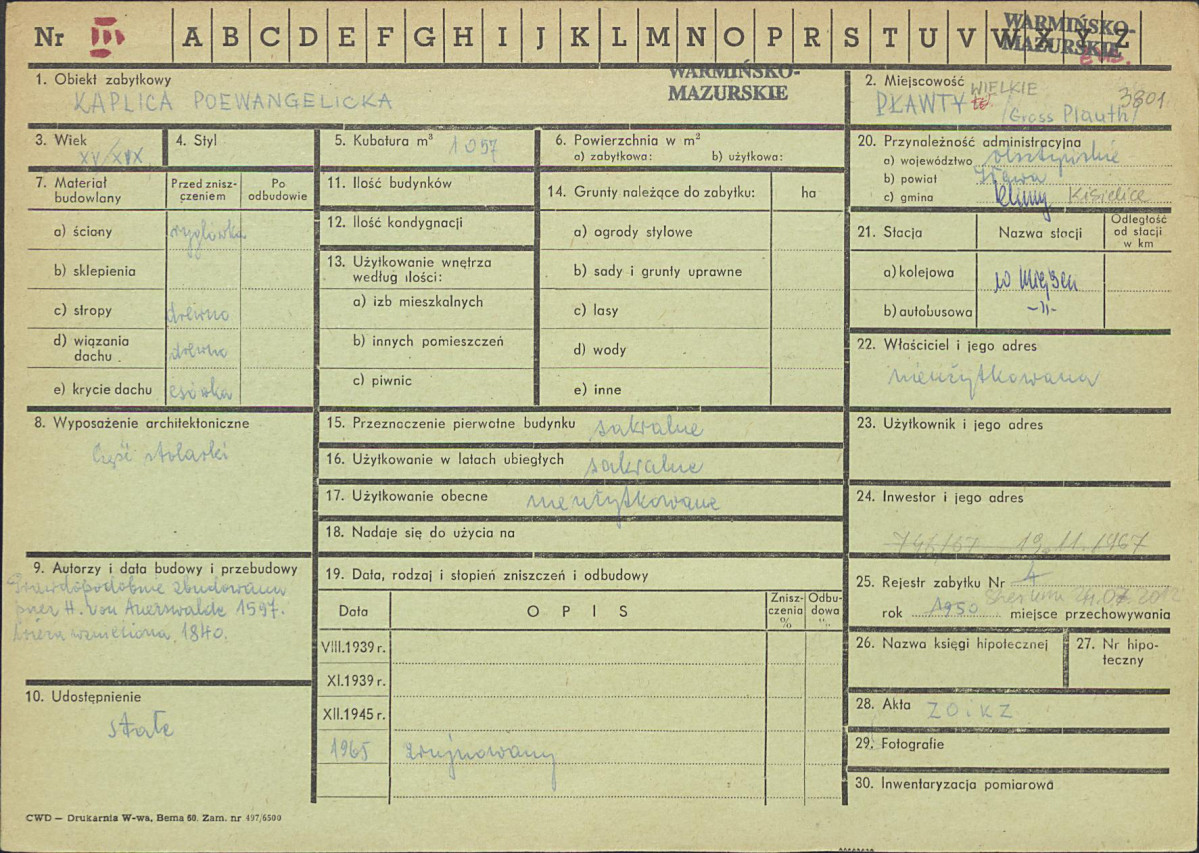 Nr III A B C D E F G H I J K L M N O P R S T U V W X Y Z
WARMIŃSKO-
MAZURSKIE
1. Obiekt zabytkowy
KAPLICA POEWANGELICKA
WARMIŃSKO-
MAZURSKIE
2. Miejscowość WIELKIE
PŁAWTY 3801
/Gross Plauth/
3. Wiek
XV/XIX
4. Styl
5. Kubatura m³ 1057
6. Powierzchnia w m²
a) zabytkowa: b) użytkowa:
7. Materiał
budowlany
Przed znisz-
czeniem
Po
odbudowie
a) ściany ryglówka
b) sklepienia
c) stropy drewno
d) wiązania
dachu drewno
e) krycie dachu esówka
8. Wyposażenie architektoniczne
Część stolarki
9. Autorzy i data budowy i przebudowy
Prawdopodobnie zbudowana
przez H. von Auerswalde 1597.
Wieża wzniesiona, 1840.
10. Udostępnienie
stałe
11. Ilość budynków
12. Ilość kondygnacji
13. Użytkowanie wnętrza
według ilości:
a) izb mieszkalnych
b) innych pomieszczeń
c) piwnic
14. Grunty należące do zabytku: ha
a) ogrody stylowe
b) sady i grunty uprawne
c) lasy
d) wody
e) inne
15. Przeznaczenie pierwotne budynku sakralne
16. Użytkowanie w latach ubiegłych sakralne
17. Użytkowanie obecne nieużytkowane
18. Nadaje się do użycia na
19. Data, rodzaj i stopień zniszczeń i odbudowy
Data OPIS
Znisz-
czenia
%
Odbu-
dowa
%
VIII.1939 r.
XI.1939 r.
XII.1945 r.
1965 zrujnowany
20. Przynależność administracyjna
a) województwo olsztyńskie
b) powiat Iława
c) gmina Klimy Kisielice
21. Stacja
Nazwa stacji
Odległość
od stacji
w km
a) kolejowa w miejscu
b) autobusowa -"-
22. Właściciel i jego adres
nieużytkowana
23. Użytkownik i jego adres
24. Inwestor i jego adres
746/67 19.11.1967
25. Rejestr zabytku Nr A
rok 1950 miejsce przechowywania
26. Nazwa księgi hipotecznej
27. Nr hipo-
teczny
28. Akta ZOiKZ
29. Fotografie
30. Inwentaryzacja pomiarowa
CWD — Drukarnia W-wa, Bema 60. Zam. nr 497/6500